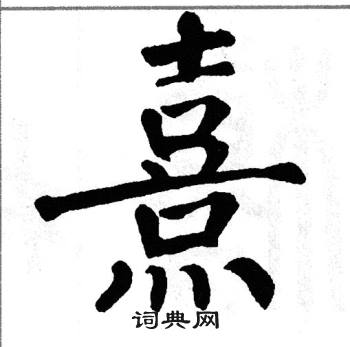 熹
词典网